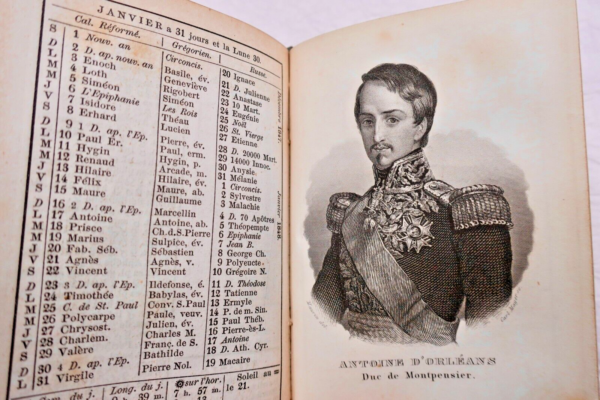 JANVIER a 31 jours et la Lune 30.
Cal. Réformé. Grégorien. Russe.
S 1 Nouv. an Circoncis. 20 Ignace
D 2 D. ap. nouv. an Basile, év. 21 D. Julienne
L 3 Enoch Geneviève 22 Anastase
M 4 Loth Rigobert 23 10 Mart.
M 5 Siméon Siméon 24 Eugénie
J 6 L'Epiphanie Les Rois 25 Noël
V 7 Isidore Théau 26 St. Vierge
S 8 Erhard Lucien 27 Etienne
D 9 1 D. ap. l'Ep. Pierre, év. 28 D. 20000 Mart.
L 10 Paul Er. Paul, erm. 29 14000 Innoc.
M 11 Hygin Hygin, p. 30 Anysie
M 12 Renaud Arcade, m. 31 Mélanie
J 13 Hilaire Hilaire, év. 1 Circoncis.
V 14 Félix Maure, ab. 2 Sylvestre
S 15 Maure Guillaume 3 Malachie
D 16 2 D. ap. l'Ep. Marcellin 4 D. 70 Apôtres
L 17 Antoine Antoine, ab. 5 Théopempte
M 18 Prisce Ch.d.S.Pierre 6 Epiphanie
M 19 Marius Sulpice, év. 7 Jean B.
J 20 Fab. Séb. Sébastien 8 George Ch.
V 21 Agnès Agnès, v. 9 Polyeucte.
S 22 Vincent Vincent 10 Grégoire N.
D 23 3 D. ap. l'Ep. Ildefonse, é. 11 D. Théodose
L 24 Timothée Babylas, év. 12 Tatienne
M 25 C. de St. Paul Conv. S. Paul 13 Ermyle
M 26 Polycarpe Paule, veuv. 14 P. de m. Sin.
J 27 Chrysost. Julien, év. 15 Paul Théb.
V 28 Charlem. Charles M. 16 Pierre-ès-L.
S 29 Valère Franç. de S. 17 Antoine
D 30 4 D. ap. l'Ep. Bathilde 18 D. Ath. Cyr.
L 31 Virgile Pierre Nol. 19 Macaire
Long. du j. sur l'hor. Soleil au
9 h. 39 m. 7 h. 57 m. le 21.
ANTOINE D'ORLÉANS
Duc de Montpensier.